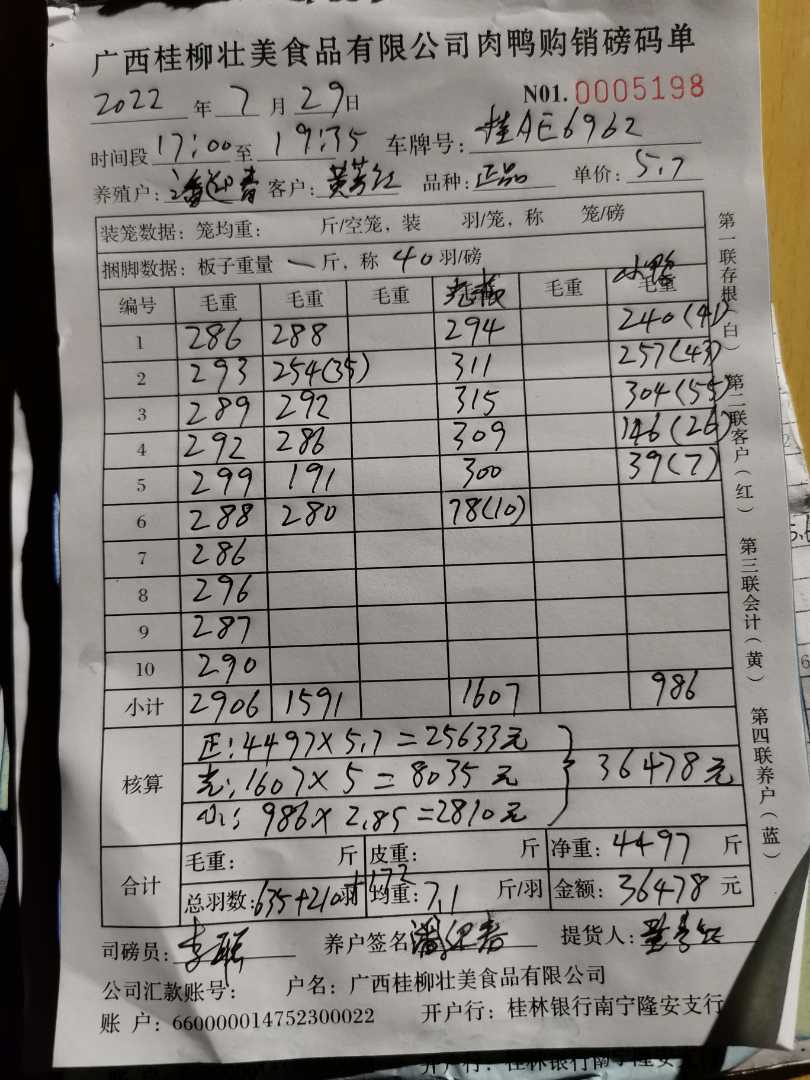 广西桂柳壮美食品有限公司肉鸭购销磅码单
2022年7月29日 N01.0005198
时间段17:00至19:35 车牌号:桂AE6962
养殖户:潘迎春 客户:黄芳红 品种:正品 单价:5.7
装笼数据:笼均重: 斤/空笼,装 羽/笼,称 笼/磅
捆脚数据:板子重量 一 斤,称 40 羽/磅
编号 毛重 毛重 毛重 毛重 小鸭 毛重
1 286 288 294 240(41)
2 293 254(35) 311 257(43)
3 289 292 315 304(55)
4 292 286 309 146(26)
5 299 191 300 39(7)
6 288 280 78(10)
7 286
8 296
9 287
10 290
小计 2906 1591 1607 986
核算
正:4497×5.7=25633元
1607×5=8035元
小:986×2.85=2810元
36478元
合计
毛重: 斤 皮重: 斤 净重:4497 斤
总羽数:635+210羽+172 均重:7.1 斤/羽 金额:36478 元
司磅员: 养户签名 潘迎春 提货人:黄芳红
公司汇款账号: 户名:广西桂柳壮美食品有限公司
账 户:660000014752300022 开户行:桂林银行南宁隆安支行
第一联存根(白)
第二联客户(红)
第三联会计(黄)
第四联养户(蓝)